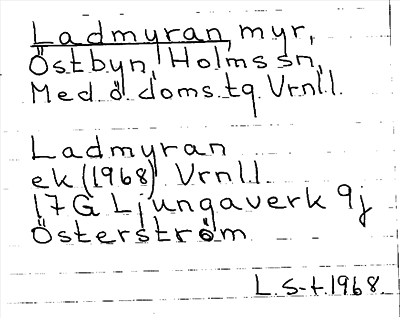 Ladmyran, myr,
Östbyn, Holms sn,
Med. ö. doms. tg Vrnll.
Ladmyran
ek (1968) Vrnll.
17 G Ljungaverk 9j
Österström
L. S-t. 1968.